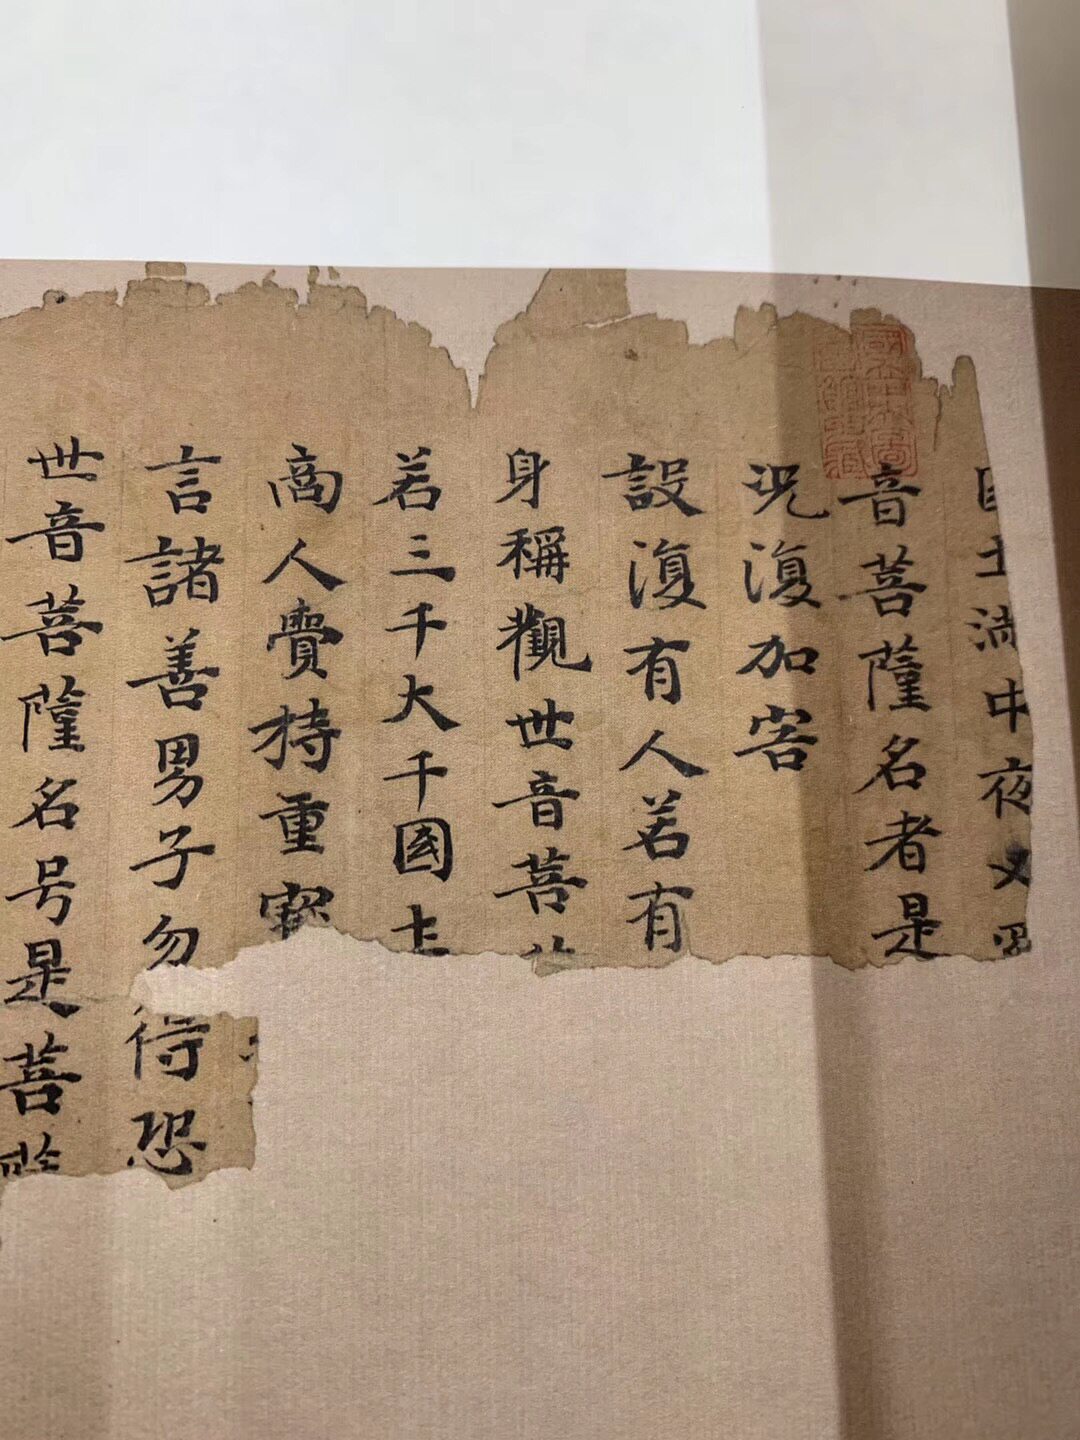 土滿中夜叉
音菩薩名者是
況復加害
設復有人若有
身稱觀世音菩
若三千大千國土
商人賷持重寳
言諸善男子勿得恐
世音菩薩名号是菩薩